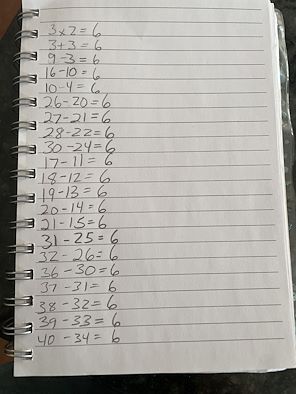 3×2=6
3+3=6
9-3=6
16-10=6
10-4=6
26-20=6
27-21=6
28-22=6
30-24=6
17-11=6
18-12=6
19-13=6
20-14=6
21-15=6
31-25=6
32-26=6
36-30=6
37-31=6
38-32=6
39-33=6
40-34=6